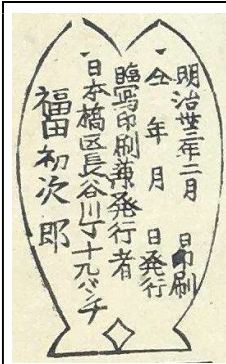 明治卅三年二月 日印刷
仝 年 月 日発行
臨写印刷兼発行者
日本橋区長谷川丁十九バンチ
福田初次郎